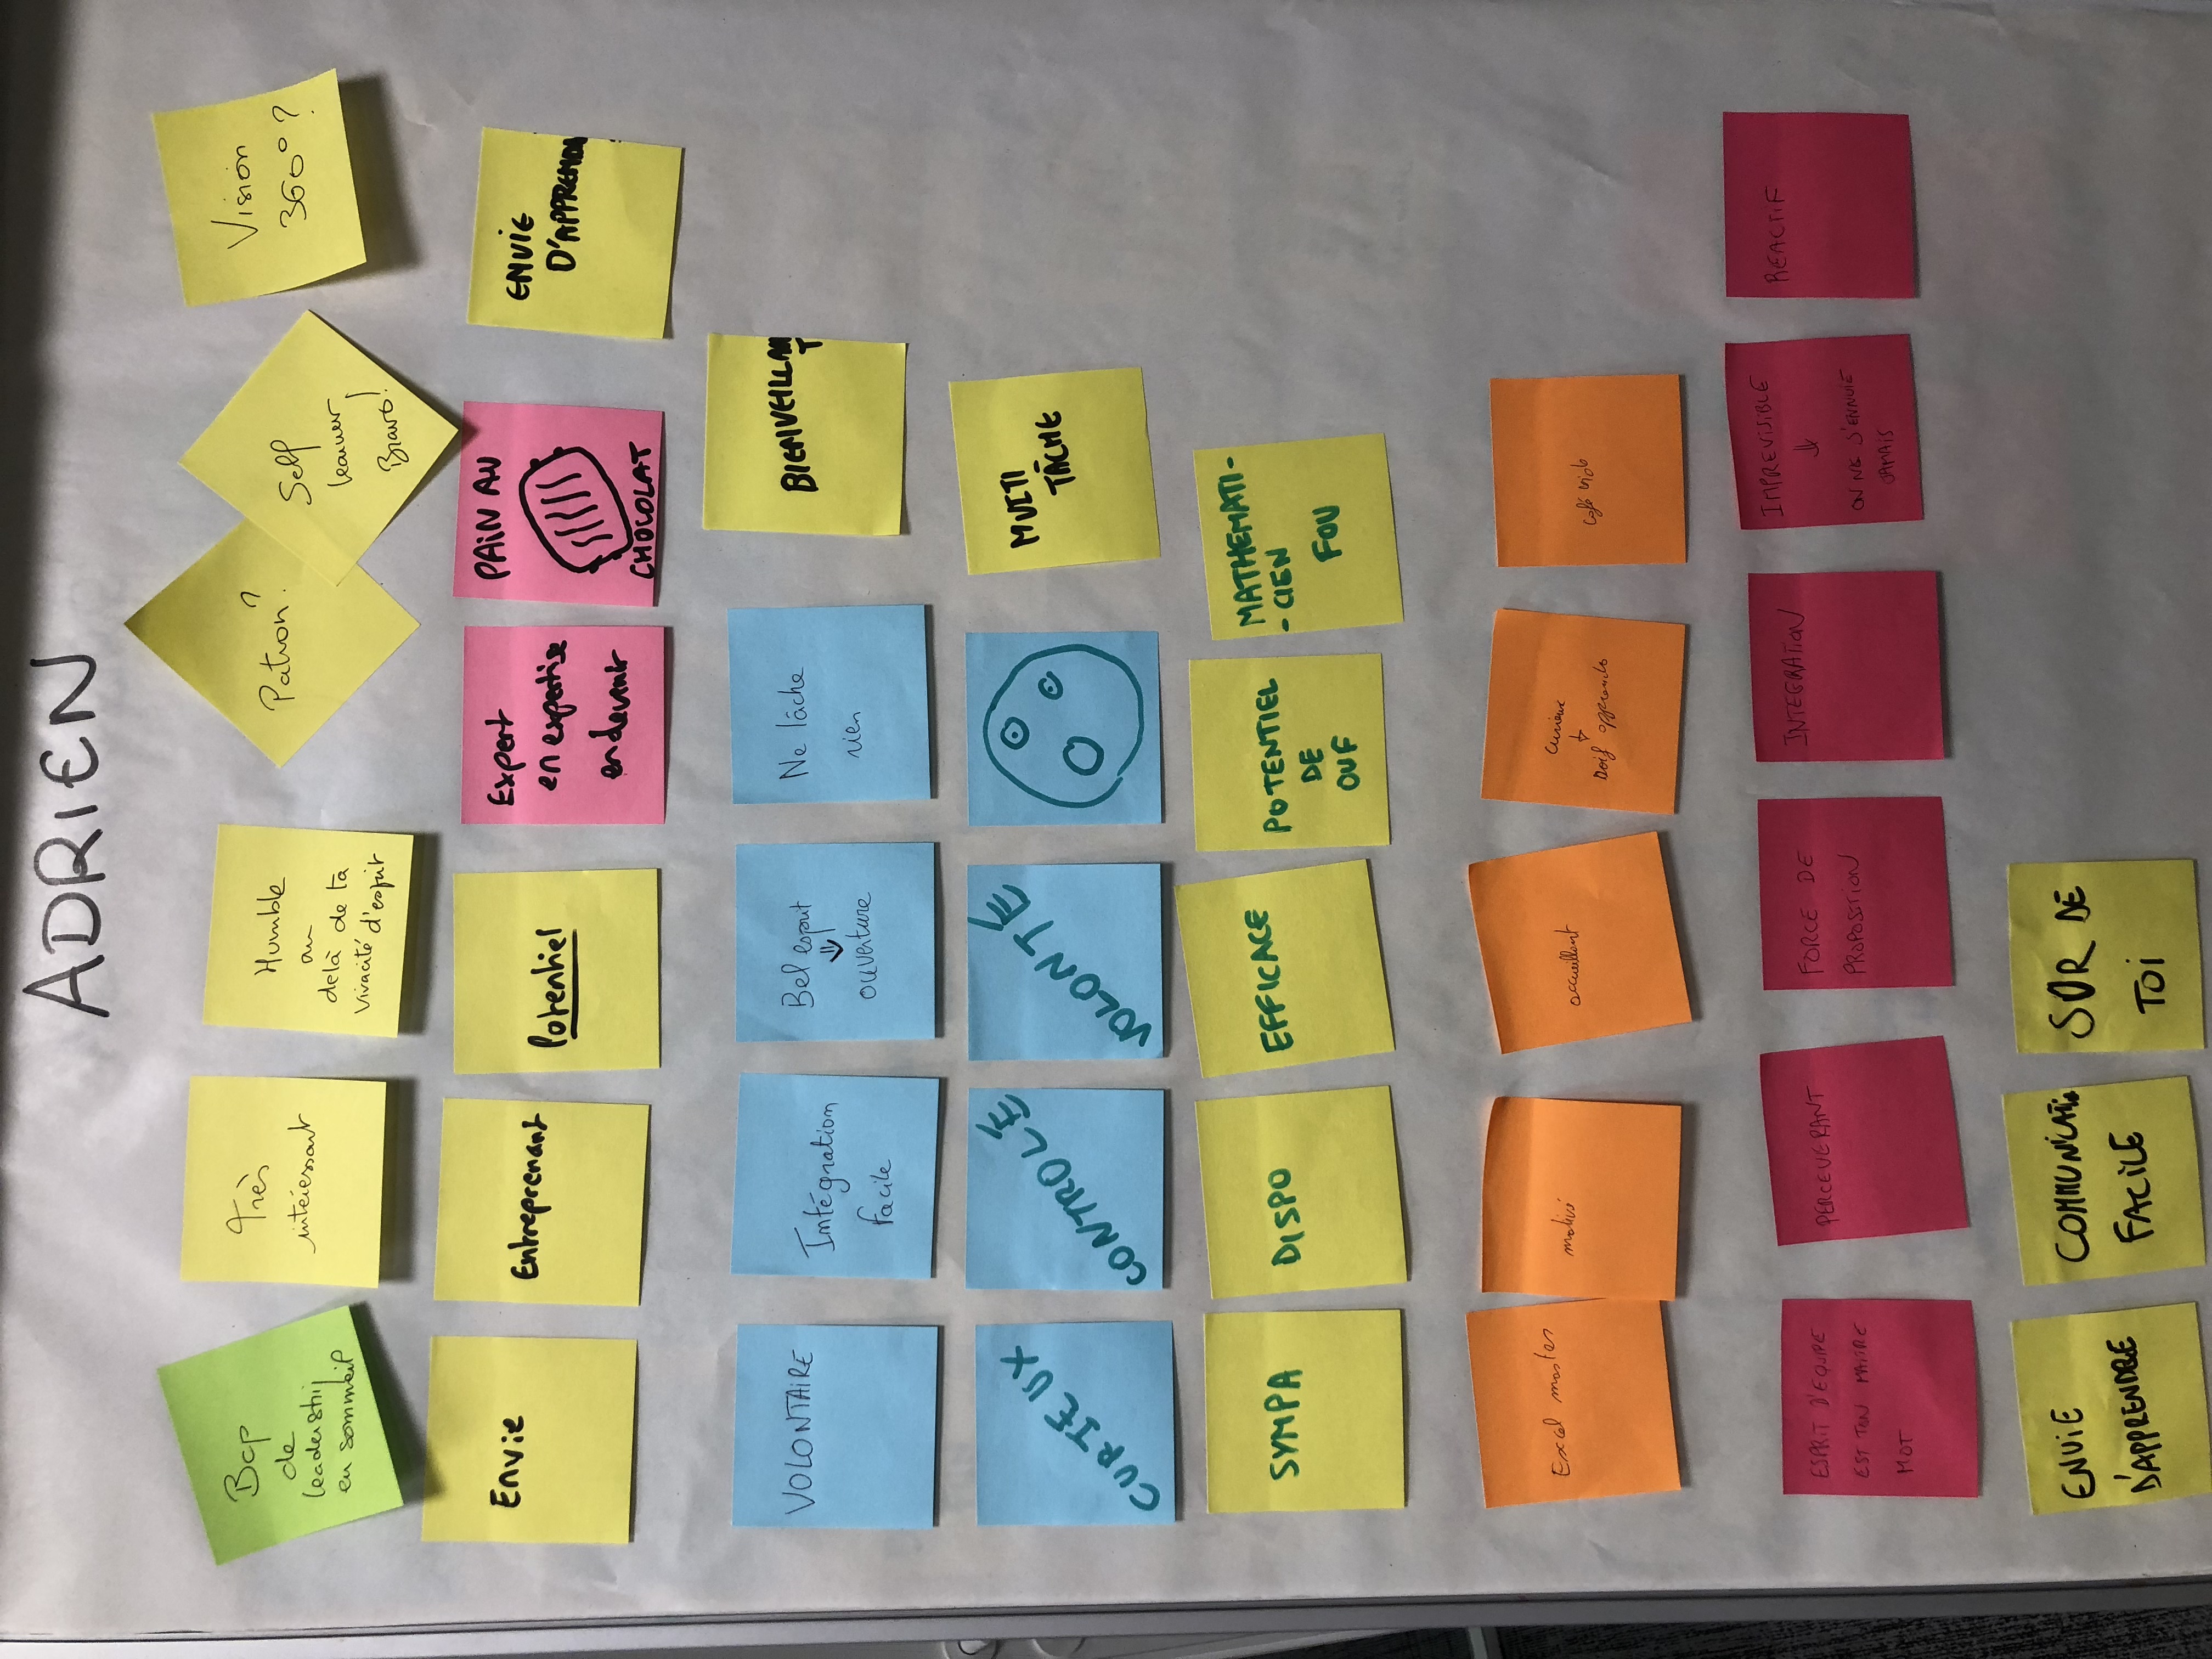 ADRIEN
Bcp
de
leadership
en sommeil
Très
intéressant
Humble
au
delà de ta
vivacité d'esprit
Patron?
Self
learner
Bravo!
Vision
360°?
Envie
Entreprenant
Potentiel
Expert
en expertise
en devenir
PAIN AU
CHOCOLAT
ENVIE
D'APPRENDRE
VOLONTAIRE
Intégration
facile
Bel esprit
⇓
ouverture
Ne lâche
rien
BIENVEILLAN
T
CURIEUX
CONTROLÉ
VOLONTÉ
MULTI
TÂCHE
SYMPA
DISPO
EFFICACE
POTENTIEL
DE
OUF
MATHEMATI-
-CIEN
FOU
Excel master
motivé
accueillant
curieux
↓
soif apprendre
café
ESPRIT D'EQUIPE
EST TON MAITRE
MOT
PERCEVERANT
FORCE DE
PROPOSITION
INTEGRATION
IMPREVISIBLE
⇓
ON NE S'ENNUIE
JAMAIS
REACTIF
ENVIE
D'APPRENDRE
COMMUNICATIO
FACILE
SUR DE
TOI